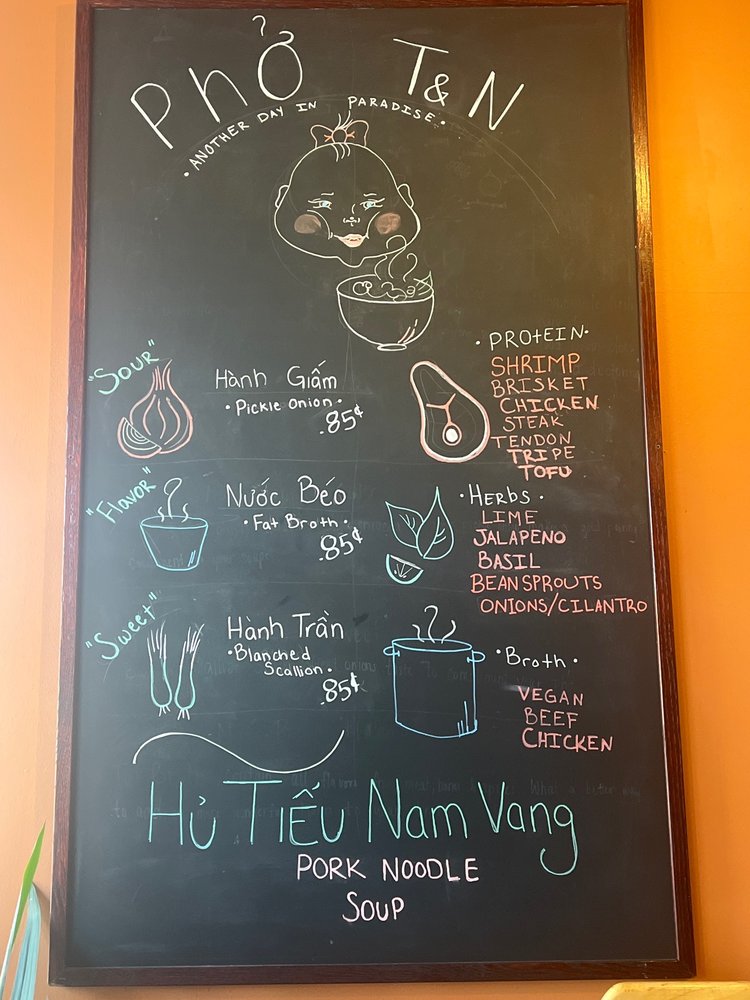 Phở T&N
• ANOTHER DAY IN PARADISE •
"SOUR"
Hành Giấm
• Pickle Onion •
.85¢
"Flavor"
Nước Béo
• Fat Broth •
.85¢
"Sweet"
Hành Trần
• Blanched
Scallion •
.85¢
• PROtEIN •
SHRIMP
BRISKET
CHICKEN
STEAK
TENDON
TRIPE
TOFU
• HERBS •
LIME
JALAPENO
BASIL
BEANSPROUTS
ONIONS/CILANTRO
• Broth •
VEGAN
BEEF
CHICKEN
HỦ TIẾU Nam Vang
PORK NOODLE
SOUP